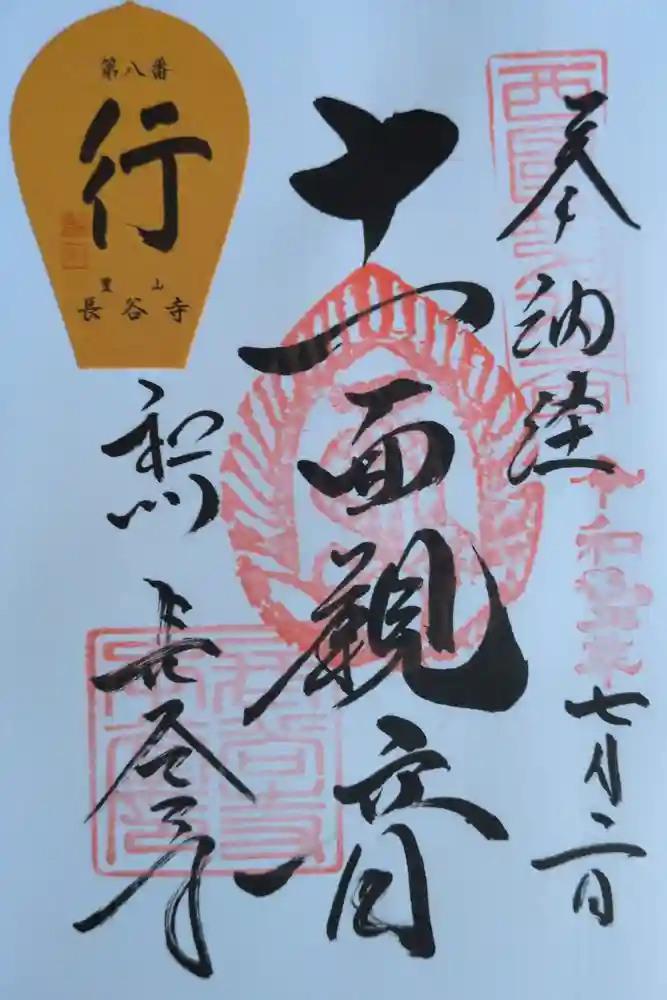 奉納経
令和
七月二日
十一面観音
和州 長谷寺
第八番
行
豊山
長谷寺